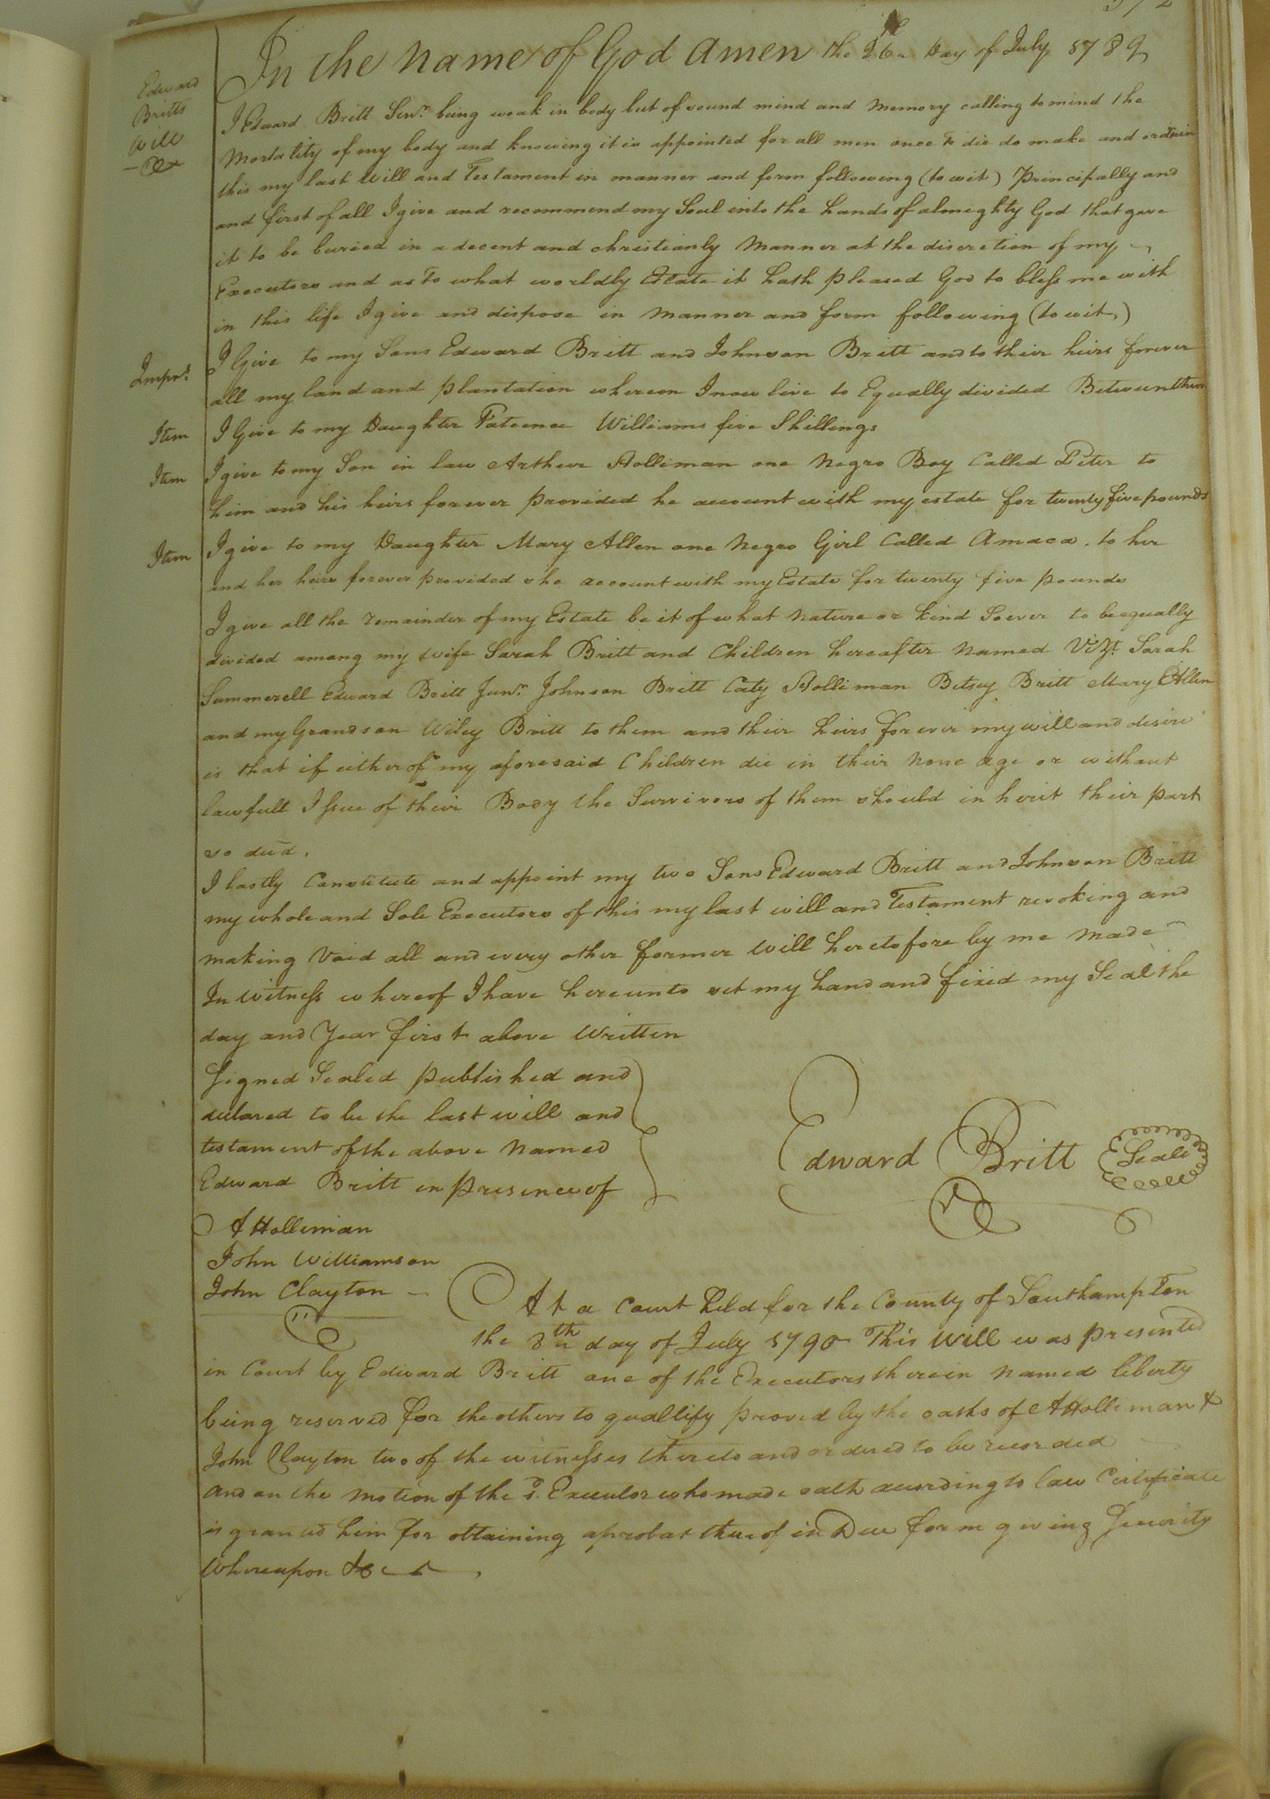 Edward
Britts
Will
In the name of God Amen the 26th Day of July 1789
I Edward Britt Senr. being weak in body but of sound mind and Memory calling to mind the
Mortality of my body and knowing it is appointed for all men once to die do make and ordain
this my last Will and Testament in manner and form following (to wit) Principally and
and first of all I give and recommend my Soul into the hands of almighty God that gave
it to be buried in a decent and christianly Manner at the discretion of my
Executors and as to what worldly Estate it hath pleased God to bless me with
in this life I give and dispose in manner and form following (to wit)
Imprs. I Give to my Sons Edward Britt and Johnson Britt and to their heirs forever
all my land and plantation whereon I now live to Equally divided Between them
Item I Give to my Daughter Pateence Williams five Shillings
Item I give to my Son in law Arthur Holliman one Negro Boy Called Peter to
him and his heirs forever provided he account with my estate for twenty five pounds
Item I give to my Daughter Mary Allen one Negro Girl Called Amaca. to her
and her heirs forever provided she account with my Estate for twenty five pounds
I give all the remainder of my Estate be it of what nature or kind Soever to be equally
divided among my wife Sarah Britt and Children hereafter Named Vizt. Sarah
Summerell Edward Britt Junr. Johnson Britt Caty Holliman Betsey Britt Mary Allen
and my Grandson Wiley Britt to them and their heirs forever my will and desire
is that if either of my aforesaid Children die in their None age or without
lawfull Issue of their Body the Survivors of them should inherit their part
so died.
I lastly Constitute and appoint my two Sons Edward Britt and Johnson Britt
my whole and Sole Executors of this my last will and Testament revoking and
making Void all and every other former Will heretofore by me made
In Witness whereof I have hereunto set my hand and fixed my Seal the
day and Year first above Written
Signed Sealed published and
declared to be the last will and
testament of the above Named
Edward Britt in presence of
Edward Britt Seal
A Holliman
John Williamson
John Clayton
At a court held for the County of Southampton
the 8th day of July 1790 This Will was presented
in Court by Edward Britt one of the Executors therein named liberty
being reserved for the others to quallify proved by the oaths of A Holliman &
John Clayton two of the witnesses thereto and ordered to be recorded
And on the motion of the sd. Executor who made oath according to law Certificate
is granted him for obtaining a probat thereof in Due form giving Security
Whereupon &c